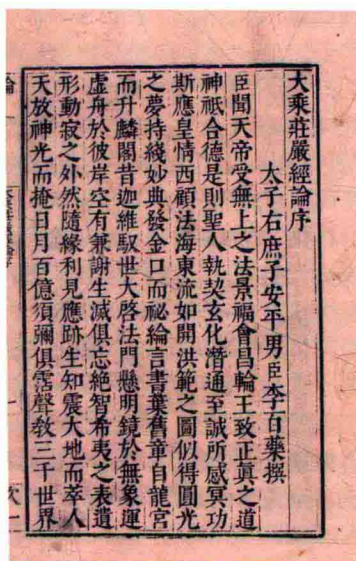 大乘莊嚴經論序
太子右庶子安平男臣李百藥撰
臣聞天帝受無上之法景福會昌輪王致正真之道
神祇合德是則聖人執契玄化潛通至誠所感冥功
斯應皇情西顧法海東流如開洪範之圖似得圓光
之夢持綫妙典發金口而秘綸言書葉舊章自龍宮
而升麟閣昔迦維馭世大啓法門懸明鏡於無象運
虛舟於彼岸空有兼謝生滅俱忘絕智希夷之表遺
形動寂之外然隨緣利見應跡生知震大地而萃人
天放神光而掩日月百億須彌俱霑聲教三千世界